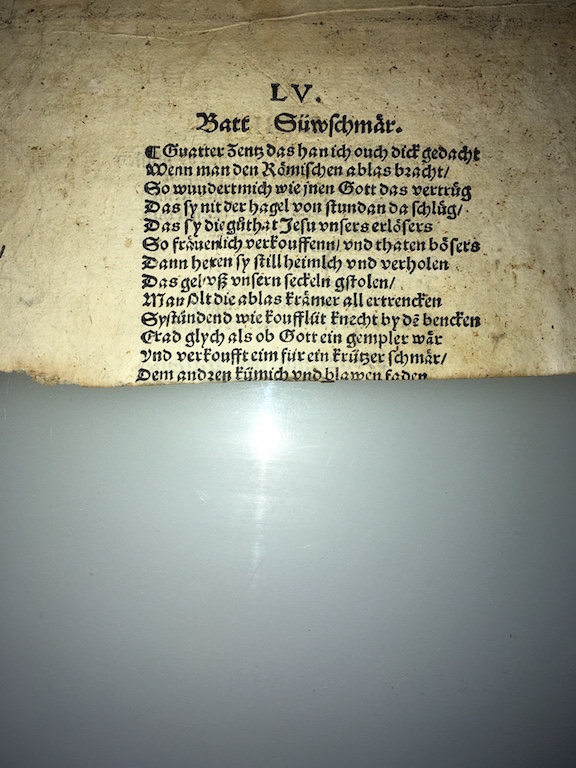 LV.
Batt Süwschmär.
¶ Guatter Zentz das han ich ouch dick gedacht
Wenn man den Römischen ablas bracht/
So wundert mich wie jnen Gott das vertrüg
Das sy nit der hagel von stundan da schlüg/
Das sy die gůthat Jesu vnsers erlösers
So fräuenlich verkouffenn/ vnd thaten bösers
Dann hetten sy still heimlch vnd verholen
Das gel vß vnsern seckeln gstolen/
Man solt die ablas krämer all ertrencken
Sy stündend wie koufflüt knecht by dē bencken
Grad glych als ob Gott ein gempler wär
Vnd verkoufft eim für ein krützer schmär/
Dem andren kümich vnd blawen faden